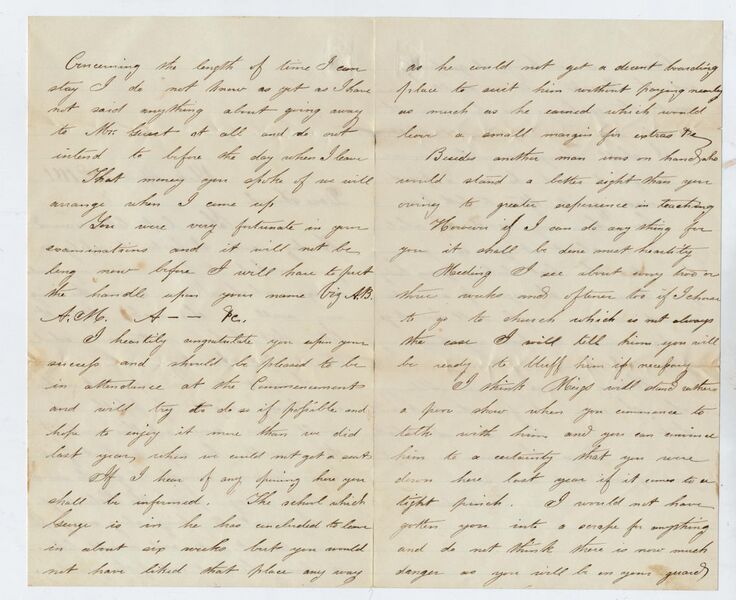 Concerning the length of time I can
stay I do not know as yet as I have
not said anything about going away
to Mr. Guest at all and do not
intend to before the day when I leave
That money you spoke of we will
arrange when I come up
You were very fortunate in your
examinations and it will not be
long now before I will have to put
the handle upon your name Viz A.B.
A.M. A— — &c.
I heartily congratulate you upon your
success and should be pleased to be
in attendance at the Commencements
and will try to do so if possible and
hope to enjoy it more than we did
last year, when we could not get a seat
If I hear of any opening here you
shall be informed. The school which
George is in he has concluded to leave
in about six weeks but you would
not have liked that place any way
as he could not get a decent boarding
place to suit him without paying nearly
as much as he earned which would
leave a small margin for extras &c
Besides another man was on hand who
would stand a better sight than you
owing to greater experience in teaching
However if I can do any thing for
you it shall be done most heartily
I see about every two or
three weeks and oftener too if I chance
to go to church which is not always
the case I will tell him you will
be ready to bluff him if necessary
I think Meigs will stand rather
a poor show when you commence to
talk with him and you can convince
him to a certainty that you were
down here last year if it comes to a
tight pinch. I would not have
gotten you into a scrape for anything
and do not think there is now much
danger as you will be on your guard